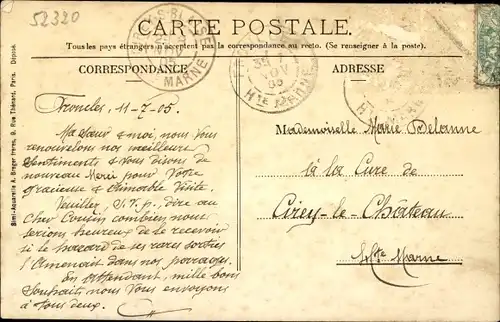 52320
CARTE POSTALE.
Tous les pays étrangers n'acceptent pas la correspondance au recto. (Se renseigner à la poste).
CORRESPONDANCE
ADRESSE
MARNE
Hte MARNE
Froncles, 11-7-05.
Ma Sœur & moi, nous Vous
renouvelons nos meilleurs
Sentiments & Vous disons de
nouveau Merci pour Votre
gracieuse & aimable Visite.
Veuillez, S.V.p., dire au
cher Cousin combien nous
serions heureux de le recevoir
si le hasard de ses rares sorties
l'Amenait dans nos parages.
En Attendant, mille bons
Souhaits nous Vous envoyons
à tous deux.
Mademoiselle Marie Delanne
à la Cure de
Cirey-le-Château
Hte Marne
Simi-Aquarelle A. Breger frères, 9, Rue Thénard, Paris. Déposé.